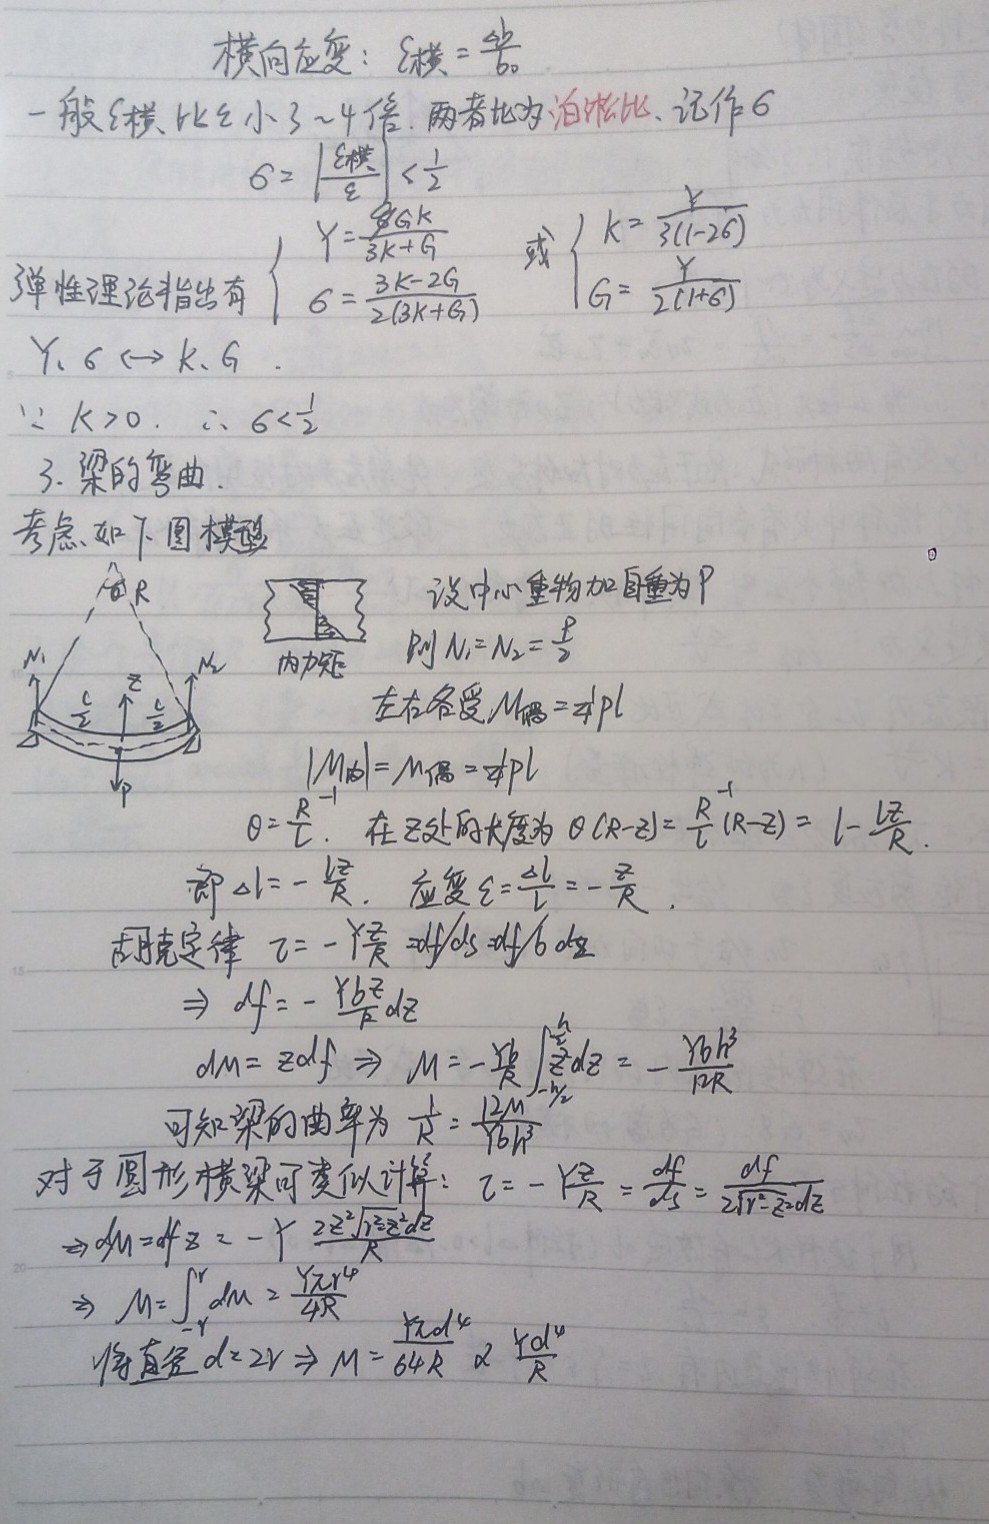 横向应变: ε横 = Δb/b₀
一般ε横比ε小3~4倍. 两者比为泊松比、记作σ
σ = |ε横/ε| < 1/2
弹性理论指出有 { Y = 9GK/(3K+G)  σ = (3K-2G)/(2(3K+G)) 或 { K = Y/(3(1-2σ))  G = Y/(2(1+σ))
Y、σ ↔ K、G.
∵ K>0. ∴ σ<1/2
3. 梁的弯曲.
考虑如下图模型
R
N₁
N₂
z
l/2
l/2
P
内力矩
设中心重物加自重为P
则 N₁=N₂=P/2
左右各受M偶=1/4 Pl
|M内|=M偶=1/4 Pl
θ = (R/l)⁻¹. 在z处的长度为 θ(R-z) = (R/l)⁻¹(R-z) = l - lz/R.
即 Δl = -lz/R. 应变ε = Δl/l = -z/R.
胡克定律 τ = -Y z/R = df/ds = df/b dz
⇒ df = -Ybz/R dz
dM = zdf ⇒ M = -Yb/R ∫_{-h/2}^{h/2} z² dz = -Ybh³/12R
可知梁的曲率为 1/R = 12M/Ybh³
对于圆形横梁可类似计算: τ = -Y z/R = df/ds = df/(2√(r²-z²) dz)
⇒ dM = df z = -Y 2z²√(r²-z²) dz/R
⇒ M = ∫_{-r}^{r} dM = Yπr⁴/4R
将直径 d=2r ⇒ M = Yπd⁴/64R ∝ Yd⁴/R